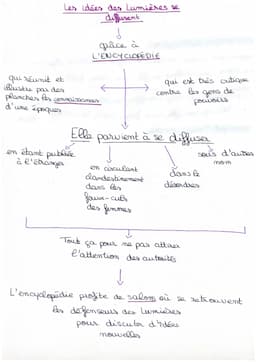 Les idées des Lumières se
diffusent
grâce à
L'ENCYCLOPÉDIE
qui réunit et
illustre par des
planches les connaissances
d'une époque
qui est très critique
contre les gens de
pouvoirs
Elle parvient à se diffuser
en étant publiée
à l'étranger
en circulant
clandestinement
dans les
faux-culs
des femmes
dans le
désordres
sous d'autres
nom
Tout ça pour ne pas attirer
l'attention des autorités
L'encyclopédie profite de salons où se retrouvent
les défenseurs des Lumières
pour discuter d'idées
nouvelles